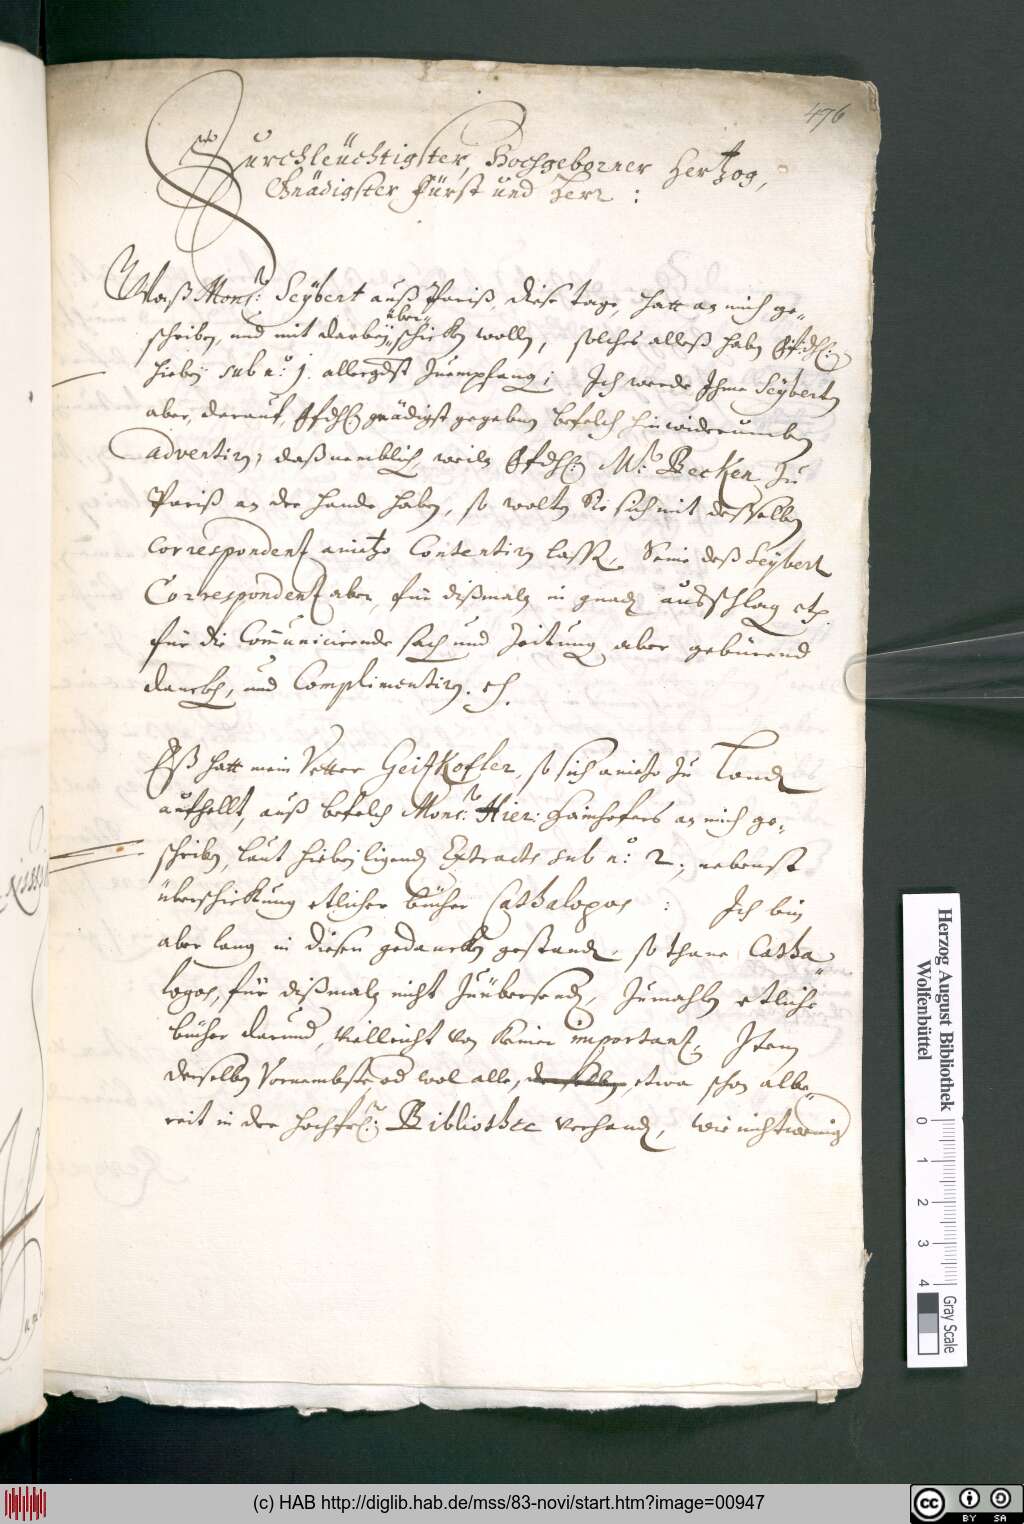 476
Durchleüchtigster, Hochgeborner Hertzog,
Gnädigster Fürst und Herr :
Waß Mons.r Seÿbert auß Pariß, diese tage, hatt an mich ge=
schriben, und mit darbeÿ über=schickhen wollen, solches alleß haben E.fr.dhl.
hiebeÿ sub n.o 1. allergdst Zuempfang; Ich werde Ihme Seÿberten
aber, darauf, E.fr.dhl. gnädigst gegeben befelch hinwiderumben
advertirn, daß nemblich, weiln E.fr.dhl: M.r Becken Zu
Pariß an der hande haben, so wolten Sie sich mit desselben
correspondenz anietzo contentirn lassen, Seine deß Seÿbert
Correspondenz aber, für dißmaln in gnaden ausschlag etc.
für die Communicirende sach und Zeitung aber gebürend
danckhen, und Complimentirn. etc.
Eß hatt mein Vetter Geitzkofler, so sich anietzo zu Londen
aufhellt, auß befelch Mons.r Hier: Hainhofers an mich ge=
schriben, laut hiebeÿ ligenden Extracts sub n.o 2; nebenst
überschickhung etlicher bücher Cathalogos : Ich bin
aber lang in disen gedanckhen gestanden, so thane Catha=
logos, für dißmaln nicht Zuübersenden, Zumahlen etliche
bücher darund, villeicht von keiner importanz, Item
derselben Vornembste, od wol alle, derselben, etwa schon albe=
reit in der hochfrl: Bibliothec verhanden, wie nichtwenig
Herzog August Bibliothek
Wolfenbüttel
0 1 2 3 4
Gray Scale
(c) HAB http://diglib.hab.de/mss/83-novi/start.htm?image=00947
cc BY SA